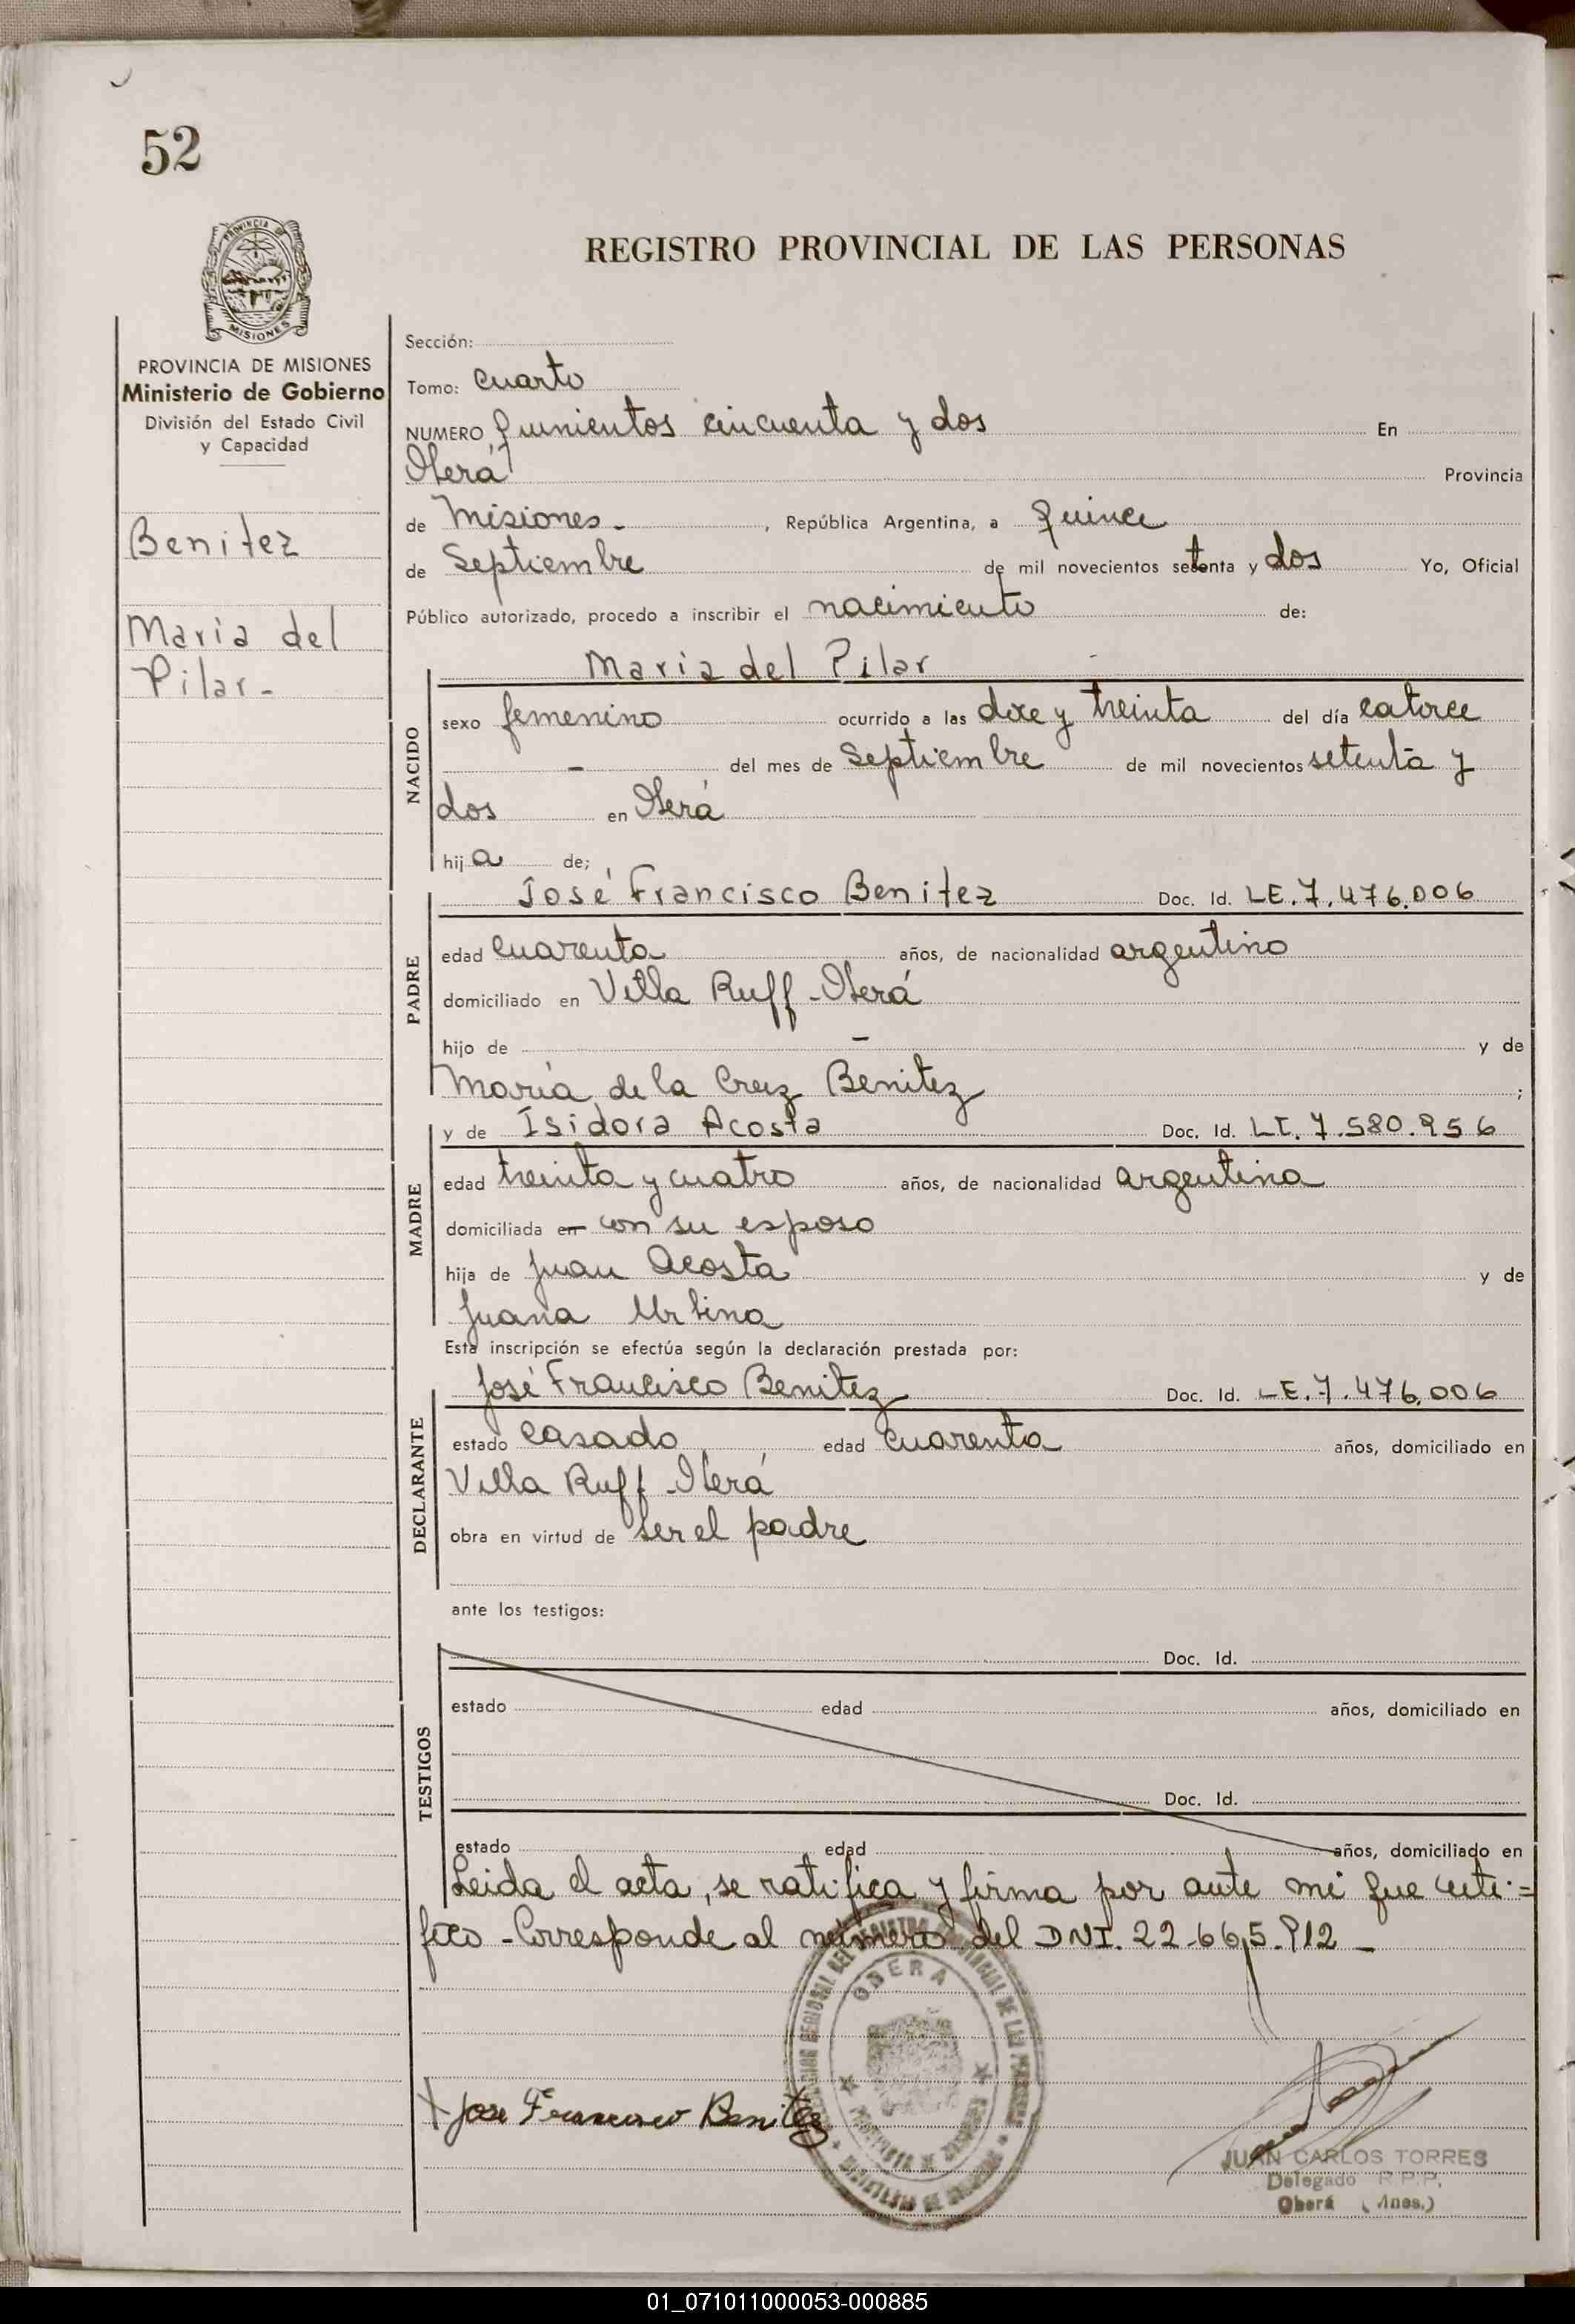 52
PROVINCIA DE
MISIONES
REGISTRO PROVINCIAL DE LAS PERSONAS
PROVINCIA DE MISIONES
Ministerio de Gobierno
División del Estado Civil
y Capacidad
Benitez
Maria del
Pilar-
Sección:
Tomo: Cuarto
NUMERO Quinientos cincuenta y dos En
Oberá Provincia
de Misiones- , República Argentina, a quince
de Septiembre de mil novecientos setenta y dos Yo, Oficial
Público autorizado, procedo a inscribir el nacimiento de:
Maria del Pilar
NACIDO
sexo femenino ocurrido a las doce y treinta del día catorce
- del mes de Septiembre de mil novecientos setenta y
dos en Oberá
hija de;
PADRE
José Francisco Benitez Doc. Id. LE.7.476.006
edad cuarenta años, de nacionalidad argentino
domiciliado en Villa Ruff-Oberá
hijo de - y de
María de la Cruz Benitez ;
MADRE
y de Isidora Acosta Doc. Id. LI.7.580.956
edad treinta y cuatro años, de nacionalidad argentina
domiciliada en con su esposo
hija de Juan Acosta y de
Juana Urbina
Esta inscripción se efectúa según la declaración prestada por:
DECLARANTE
José Francisco Benitez Doc. Id. LE.7.476.006
estado casado edad cuarenta años, domiciliado en
Villa Ruff-Oberá
obra en virtud de ser el padre
ante los testigos:
TESTIGOS
Doc. Id.
estado edad años, domiciliado en
Doc. Id.
estado edad años, domiciliado en
Leida el acta, se ratifica y firma por ante mi que certi=
fico-Corresponde al número del DNI. 22.665.912-
OBERA
Jose Francisco Benitez
JUAN CARLOS TORRES
Delegado R.P.P.
Oberá (Mnes.)
01_071011000053-000885